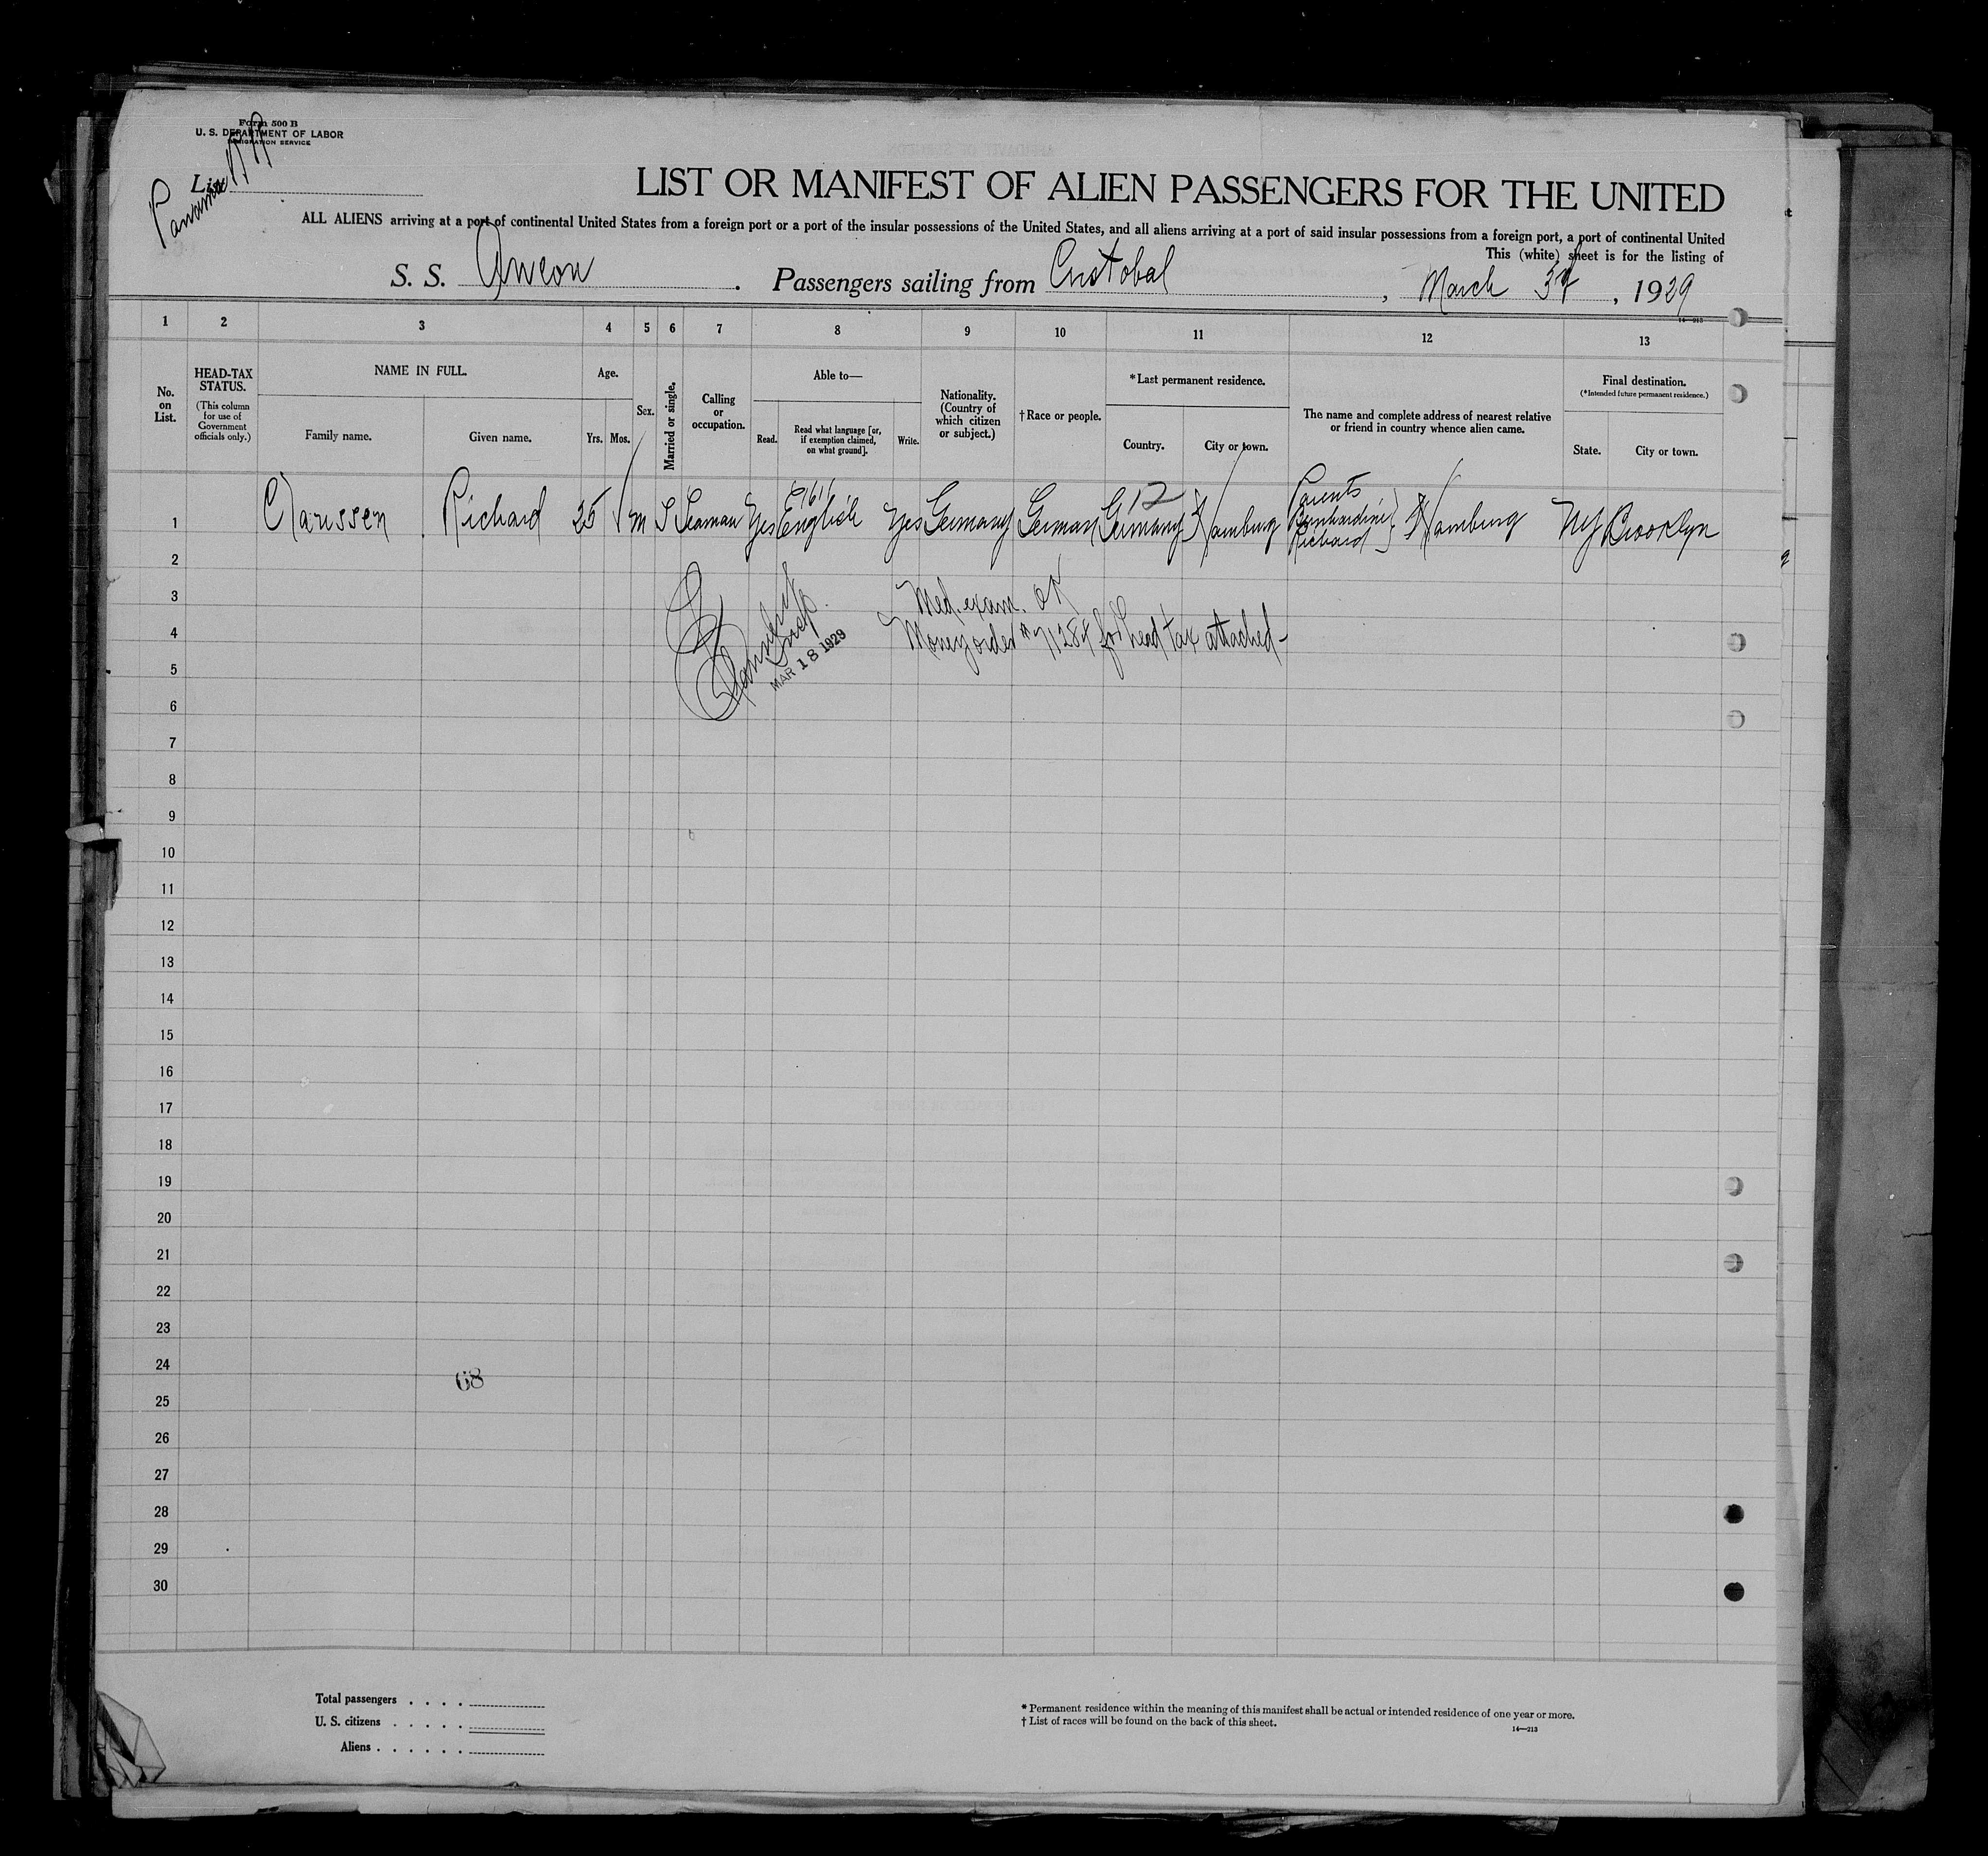 Form 500 B
U. S. DEPARTMENT OF LABOR
IMMIGRATION SERVICE
List
Panama RR
LIST OR MANIFEST OF ALIEN PASSENGERS FOR THE UNITED
ALL ALIENS arriving at a port of continental United States from a foreign port or a port of the insular possessions of the United States, and all aliens arriving at a port of said insular possessions from a foreign port, a port of continental United
This (white) sheet is for the listing of
S. S. Ancon. Passengers sailing from Cristobal, March 3rd, 1929
14—213
1 2 3 4 5 6 7 8 9 10 11 12 13
No. on List.
HEAD-TAX STATUS.
(This column for use of Government officials only.)
NAME IN FULL.
Family name. Given name.
Age.
Yrs. Mos.
Sex.
Married or single.
Calling or occupation.
Able to—
Read. Read what language [or, if exemption claimed, on what ground]. Write.
Nationality. (Country of which citizen or subject.)
†Race or people.
*Last permanent residence.
Country. City or town.
The name and complete address of nearest relative or friend in country whence alien came.
Final destination.
(*Intended future permanent residence.)
State. City or town.
1 Clarissen Richard 25 m S Seaman Yes English Yes Germany German Germany Hamburg Parents Bernhardine Richard } Hamburg NY Brooklyn
12
2
3 Med. exam. OK
4 Money order # 71284 for head tax attached-
Insp.
MAR 18 1929
5
6
7
8
9
10
11
12
13
14
15
16
17
18
19
20
21
22
23
24
68
25
26
27
28
29
30
Total passengers . . . .
U. S. citizens . . . . .
Aliens . . . . . .
* Permanent residence within the meaning of this manifest shall be actual or intended residence of one year or more.
† List of races will be found on the back of this sheet.
14—213